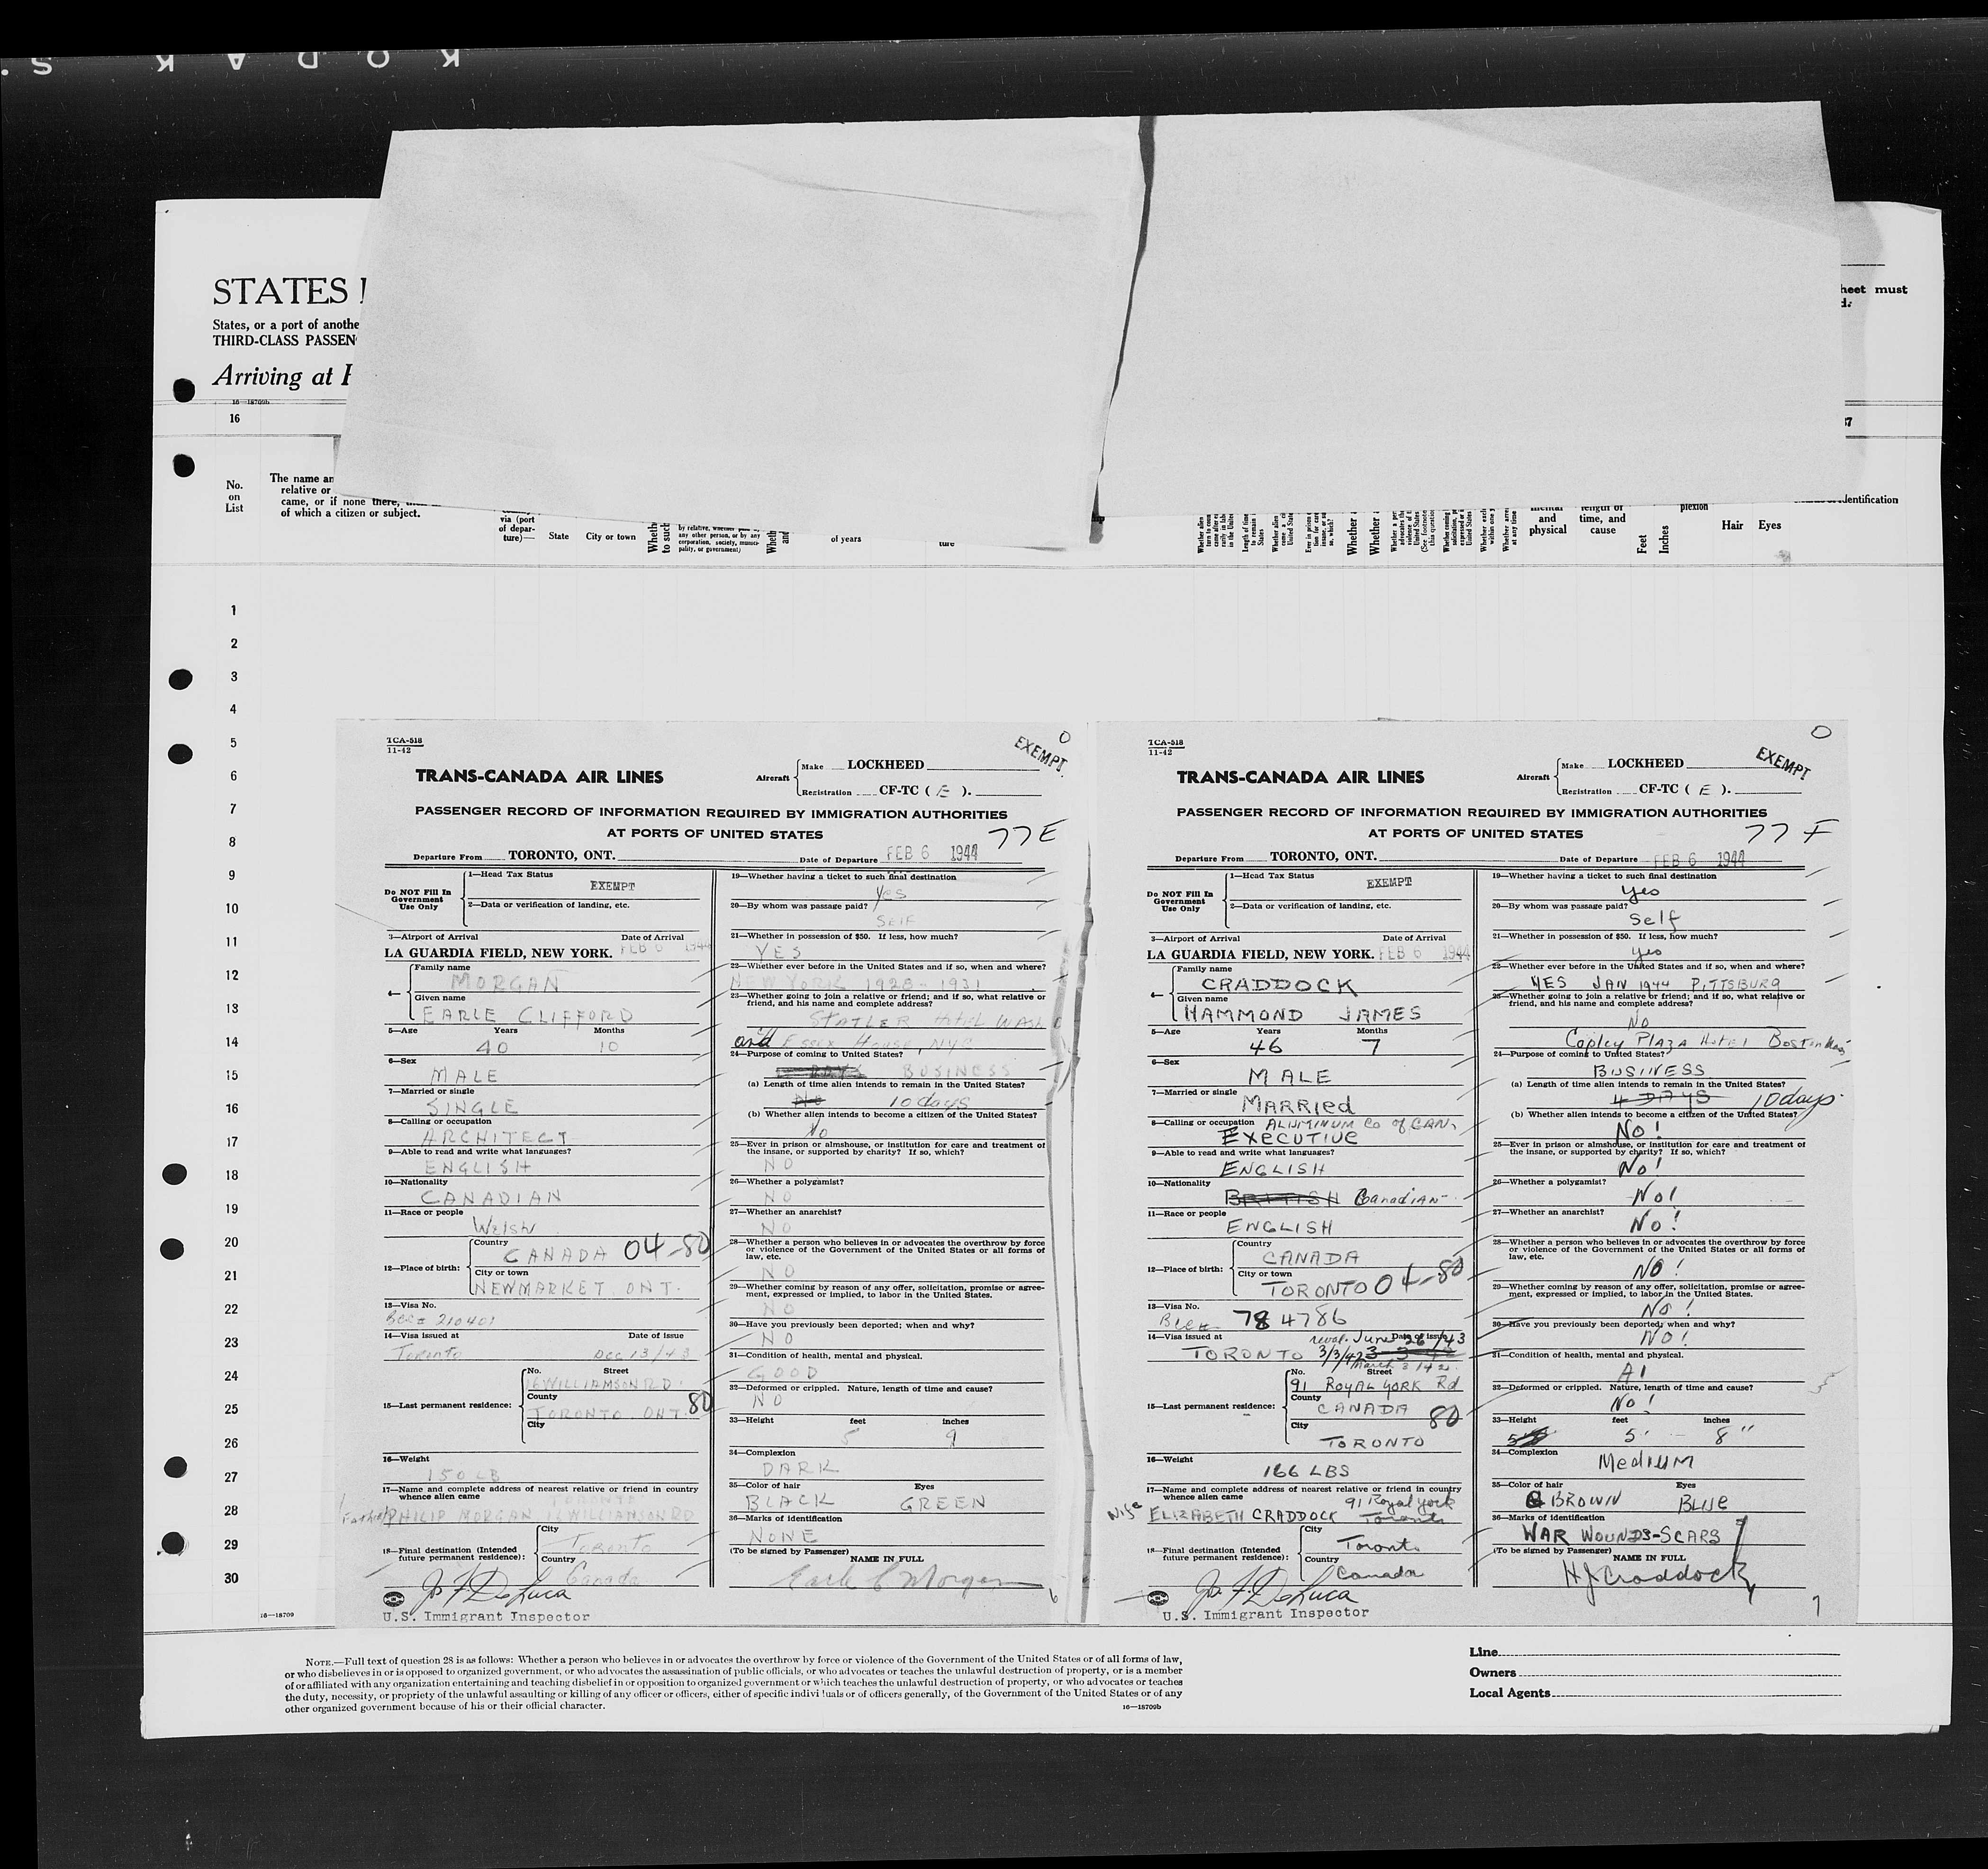 KODAK S.
STATES
States, or a port of anothe
THIRD-CLASS PASSEN
Arriving at
16—18709b
16
37
heet must
d:
No.
on
List
The name an
relative or
came, or if none there,
of which a citizen or subject.
via (port
of depar-
ture)—
State
City or town
by relative, whether
any other person, or by any
corporation, society, munici-
pality, or government)
of years
ture
mental
and
physical
length of
time, and
cause
Feet
Inches
plexion
Hair
Eyes
identification
1
2
3
4
5
6
7
8
9
10
11
12
13
14
15
16
17
18
19
20
21
22
23
24
25
26
27
28
29
30
16—18709
TCA-518
11-42
O
EXEMPT.
TRANS-CANADA AIR LINES
Aircraft
Make LOCKHEED
Registration CF-TC ( E ).
PASSENGER RECORD OF INFORMATION REQUIRED BY IMMIGRATION AUTHORITIES
AT PORTS OF UNITED STATES
77E
Departure From TORONTO, ONT.
Date of Departure FEB 6 1944
Do NOT Fill In
Government
Use Only
1—Head Tax Status
EXEMPT
2—Data or verification of landing, etc.
3—Airport of Arrival Date of Arrival
LA GUARDIA FIELD, NEW YORK. FEB 6 1944
4—
Family name
MORGAN
Given name
EARLE CLIFFORD
5—Age Years Months
40 10
6—Sex
MALE
7—Married or single
SINGLE
8—Calling or occupation
ARCHITECT
9—Able to read and write what languages?
ENGLISH
10—Nationality
CANADIAN
11—Race or people
Welsh
12—Place of birth:
Country
CANADA 04-80
City or town
NEWMARKET ONT.
13—Visa No.
Bcc# 210401
14—Visa issued at Date of issue
Toronto Dec 13/43
15—Last permanent residence:
No. Street
16 WILLIAMSON RD.
County
TORONTO. ONT. 80
City
16—Weight
150 LB
17—Name and complete address of nearest relative or friend in country
whence alien came
TORONTO
Father PHILIP MORGAN 16 WILLIAMSON RD
18—Final destination (Intended
future permanent residence):
City
Toronto
Country
Canada
Jo. F. DeLuca
U.S. Immigrant Inspector
19—Whether having a ticket to such final destination
Yes
20—By whom was passage paid?
SELF
21—Whether in possession of $50. If less, how much?
YES
22—Whether ever before in the United States and if so, when and where?
NEW YORK 1928-1931
23—Whether going to join a relative or friend; and if so, what relative or
friend, and his name and complete address?
STATLER Hotel WASH
and ESSEX HOUSE, NYC
24—Purpose of coming to United States?
BUSINESS
(a) Length of time alien intends to remain in the United States?
No 10 days
(b) Whether alien intends to become a citizen of the United States?
No
25—Ever in prison or almshouse, or institution for care and treatment of
the insane, or supported by charity? If so, which?
NO
26—Whether a polygamist?
NO
27—Whether an anarchist?
NO
28—Whether a person who believes in or advocates the overthrow by force
or violence of the Government of the United States or all forms of
law, etc.
NO
29—Whether coming by reason of any offer, solicitation, promise or agree-
ment, expressed or implied, to labor in the United States.
NO
30—Have you previously been deported; when and why?
NO
31—Condition of health, mental and physical.
GOOD
32—Deformed or crippled. Nature, length of time and cause?
NO
33—Height feet inches
5 9
34—Complexion
DARK
35—Color of hair Eyes
BLACK GREEN
36—Marks of identification
NONE
(To be signed by Passenger) NAME IN FULL
Earle C Morgan
6
TCA-518
11-42
O
EXEMPT
TRANS-CANADA AIR LINES
Aircraft
Make LOCKHEED
Registration CF-TC ( E ).
PASSENGER RECORD OF INFORMATION REQUIRED BY IMMIGRATION AUTHORITIES
AT PORTS OF UNITED STATES
77 F
Departure From TORONTO, ONT.
Date of Departure FEB 6 1944
Do NOT Fill In
Government
Use Only
1—Head Tax Status
EXEMPT
2—Data or verification of landing, etc.
3—Airport of Arrival Date of Arrival
LA GUARDIA FIELD, NEW YORK. FEB 6 1944
4—
Family name
CRADDOCK
Given name
HAMMOND JAMES
5—Age Years Months
46 7
6—Sex
MALE
7—Married or single
MARRied
8—Calling or occupation ALUMINUM Co of CAN.
Executive
9—Able to read and write what languages?
ENGLISH
10—Nationality
BRITISH Canadian
11—Race or people
ENGLISH
12—Place of birth:
Country
CANADA
City or town
TORONTO 04-80
13—Visa No.
Bcc# 784786
14—Visa issued at Date of issue
reval. June 26/43
TORONTO 3/3/42 3-3-42
March 3/42.
15—Last permanent residence:
No. Street
91 ROYAL YORK Rd
County
CANADA 80
City
TORONTO
16—Weight
166 LBS
17—Name and complete address of nearest relative or friend in country
whence alien came
91 Royal york
Wife ELIZABETH CRADDOCK Toronto
18—Final destination (Intended
future permanent residence):
City
Toronto
Country
Canada
Jo. F. DeLuca
U.S. Immigrant Inspector
19—Whether having a ticket to such final destination
yes
20—By whom was passage paid?
Self
21—Whether in possession of $50. If less, how much?
yes
22—Whether ever before in the United States and if so, when and where?
YES JAN 1944 PITTSBURG
23—Whether going to join a relative or friend; and if so, what relative or
friend, and his name and complete address?
No
Copley PLAZA Hotel Boston Mass
24—Purpose of coming to United States?
BUSINESS
(a) Length of time alien intends to remain in the United States?
4 DAYS 10 days.
(b) Whether alien intends to become a citizen of the United States?
No!
25—Ever in prison or almshouse, or institution for care and treatment of
the insane, or supported by charity? If so, which?
No!
26—Whether a polygamist?
No!
27—Whether an anarchist?
No!
28—Whether a person who believes in or advocates the overthrow by force
or violence of the Government of the United States or all forms of
law, etc.
NO!
29—Whether coming by reason of any offer, solicitation, promise or agree-
ment, expressed or implied, to labor in the United States.
No!
30—Have you previously been deported; when and why?
NO!
31—Condition of health, mental and physical.
A1
32—Deformed or crippled. Nature, length of time and cause?
No!
33—Height feet inches
5' 8"
34—Complexion
Medium
35—Color of hair Eyes
BROWN Blue
36—Marks of identification
WAR WOUNDS-SCARS
(To be signed by Passenger) NAME IN FULL
HJ Craddock
7
NOTE.—Full text of question 28 is as follows: Whether a person who believes in or advocates the overthrow by force or violence of the Government of the United States or of all forms of law,
or who disbelieves in or is opposed to organized government, or who advocates the assassination of public officials, or who advocates or teaches the unlawful destruction of property, or is a member
of or affiliated with any organization entertaining and teaching disbelief in or opposition to organized government or which teaches the unlawful destruction of property, or who advocates or teaches
the duty, necessity, or propriety of the unlawful assaulting or killing of any officer or officers, either of specific individuals or of officers generally, of the Government of the United States or of any
other organized government because of his or their official character.
16—18709b
Line
Owners
Local Agents